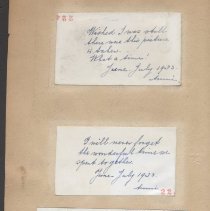 224
Wished I was still
there now this picture
is taken.
What a time
June, July 1933.
Annie
I will never forget
the wonderful time we
spent together.
June July 1933.
Annie
22